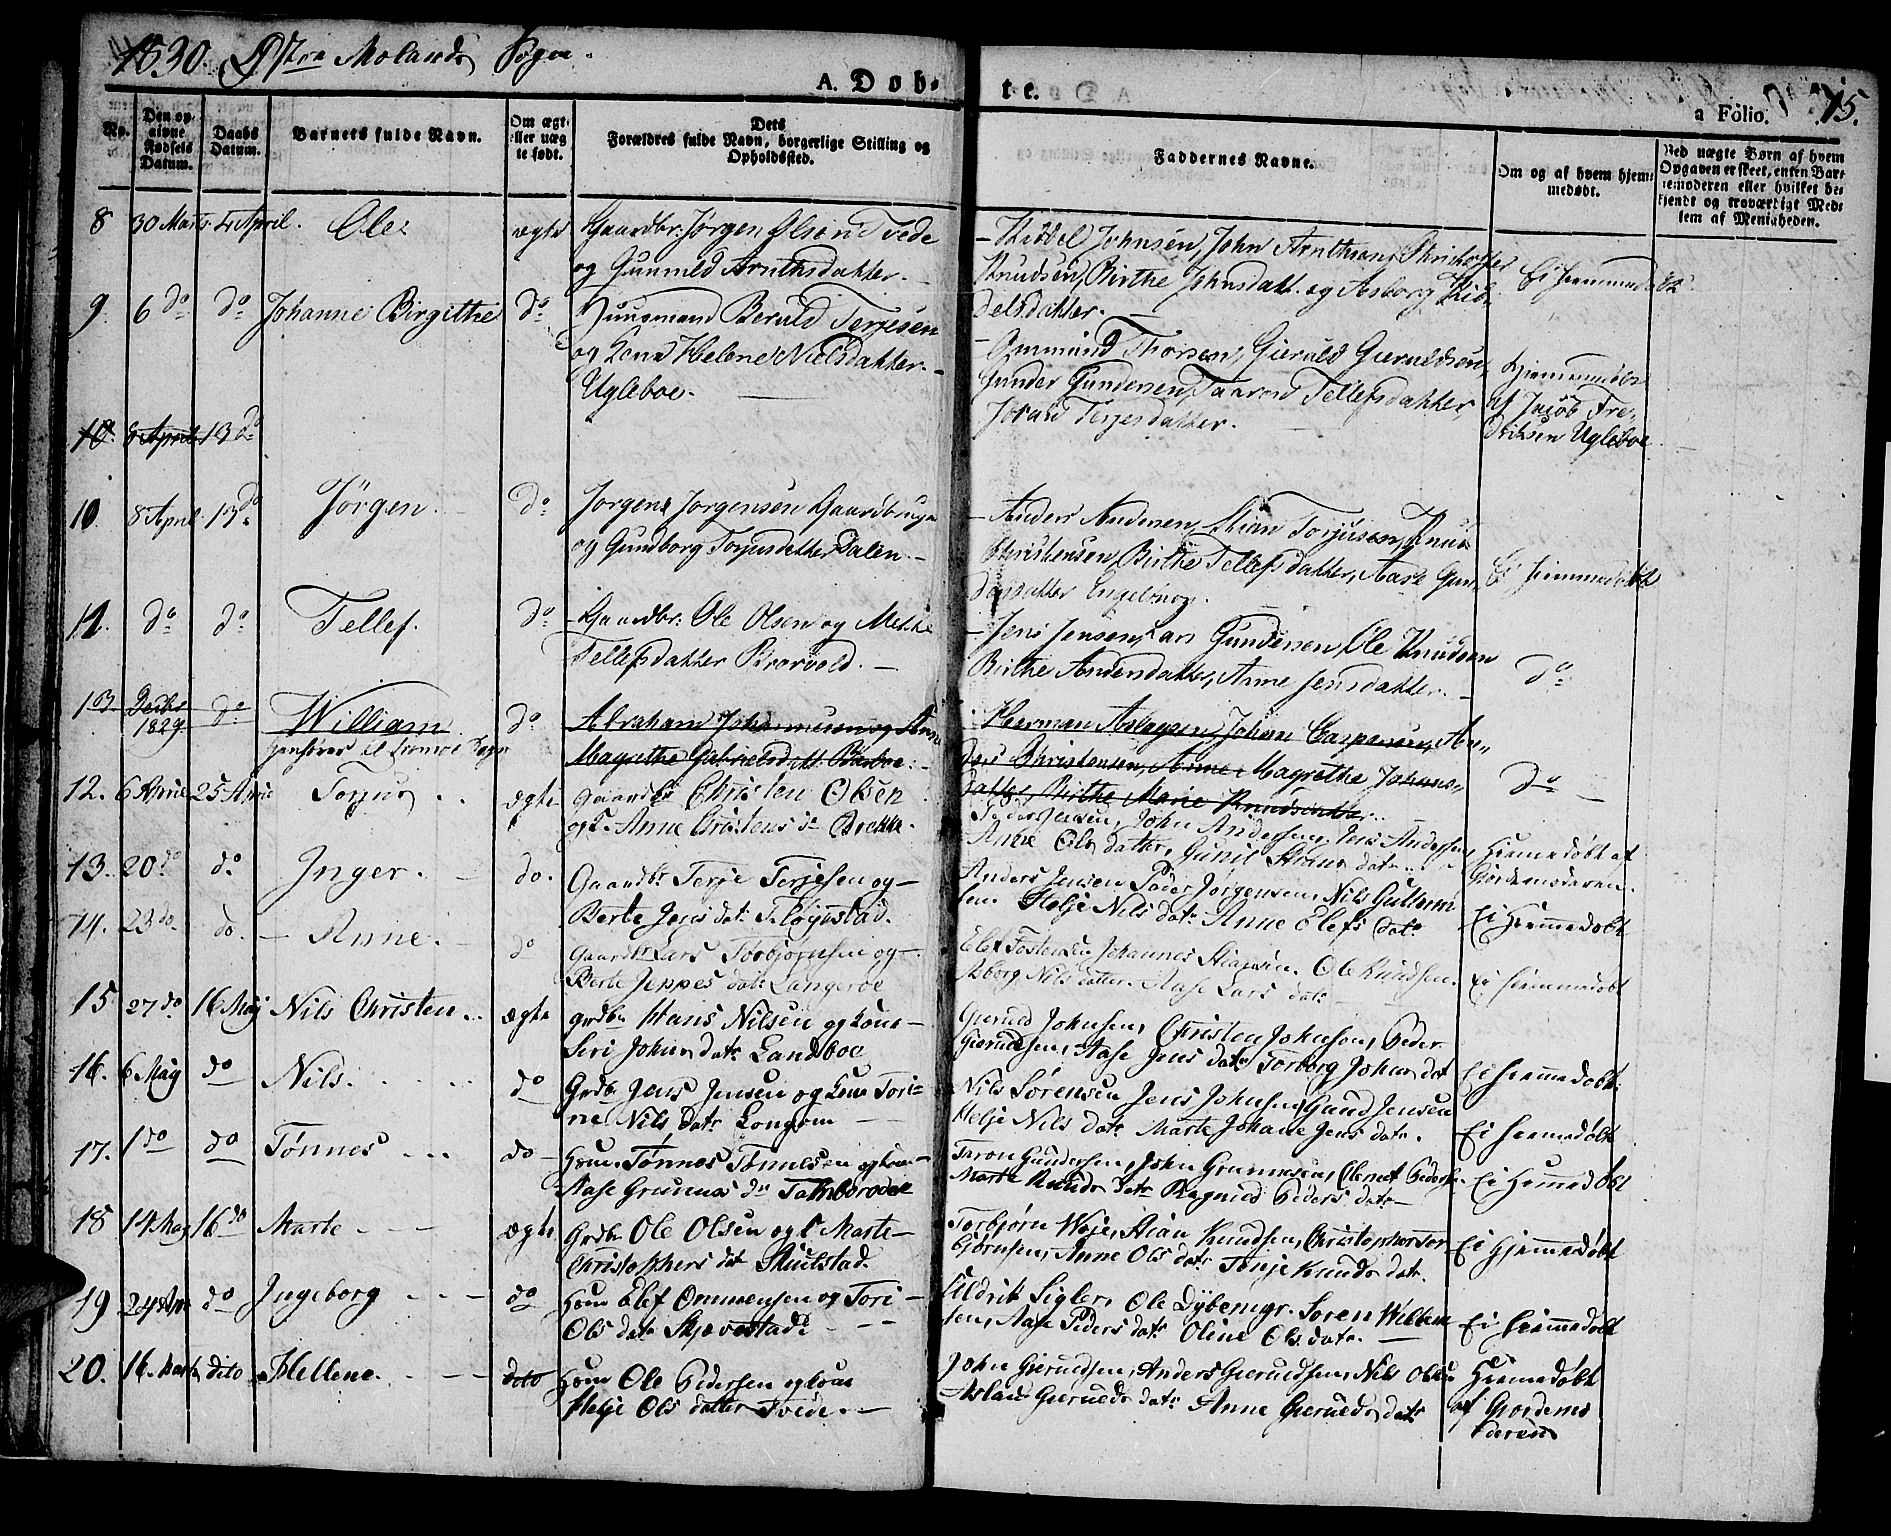 1830. Østre Molands Sogn.
A. Døb-
te.
a Folio.
75.
No.
Den op-
givne
Fødsels
Datum.
Daabs
Datum.
Barnets fulde Navn.
Om ægt
eller uæg
te født.
Dets
Forældres fulde Navn, borgerlige Stilling og
Opholdssted.
Faddernes Navne.
Om og af hvem hjem-
medøbt.
Ved uægte Børn af hvem
Opgaven er skeet, enten Bar-
nemoderen eller hvilket be-
kjendt og troværdigt Med-
lem af Menigheden.
8 30 Marts 4 April. Ole ægte Gaardbr. Jørgen Olsen Tvede
og Gunnild Arnthsdatter.
Kiddel Johnsen, John Arnthsen,
Knudsen, Birthe Johnsdatt. og Asborg Kid-
delsdatter.
Ei hiemmedøbt
9. 6 do do Johanne Birgithe do Huusmand Beruld Terjesen
og Kone Helene Nielsdatter
Ugleboe.
Ommund Thorsen, Gieruld Gieruldsen,
Gunder Gundersen, Taarand Tellefsdatter,
Joran Terjesdatter.
Hjemmedøbt
af Jacob Fre-
driksen Ugleboe
10. 8 April 13 do
10. 8 April 13 do Jørgen. do Jørgen Jørgensen Gaardbruger
og Gundborg Torjusdatter Dalen.
Anders Andersen, Stian Torjusen, Knud
Christensen, Birthe Tellefsdatter, Aase Gun-
dersdatter Engelbug.
Ei hiemmedøbt
11. do do Tellef. do Gaardbr. Ole Olsen og Mekke
Tellefsdatter Brorvold.
Jens Jensen, Lars Gundersen, Ole Knudsen
Birthe Andersdatter, Anne Jensdatter.
do
Decbr
1829 do William do Abraham Johannesen og Anne
Magrethe Gabrielsdatt. Barboe.
henføres til Tromøe Sogn
Herman Aslagsen, Johan Caspersen, An-
ders Christensen, Anne Magrethe Johans-
datter, Birthe Marie Knudsdatter.
do
12. 6 April 25 April Torjus ægte Gaardbr Christen Olsen
og K. Anne Christens dr Brekke.
Peder Jensen, John Andersen, Jens Andersen,
Anne Ols datter, Gunil Stians datr.
Hiemedøbt af
Giordemoderen.
13. 20 do do Inger. do. Gaardbr Terje Terjesen og
Berte Jens datr Fløgstad.
Anders Jensen Peder Jørgensen, Nils Guttorm
sen. Helje Nils datr. Anne Elefs datr
Ei Hiemmedøbt
14. 23 do. do. Anne. do Gaardbr Lars Torbjørnsen og
Berte Jeppes datr Langeroe
Elef Tostensen Johannes Stiansen. Ole Knudsen.
Asborg Nils datter. Aase Lars datr
Ei hiemmedøbt
15 27 do 16 Maj Nils Christen ægte grdbr Hans Nilsen og kone
Siri Johns datr Landboe
Gieruld Johnsen, Christen Johnsen, Peder
Gieruldsen, Aase Jens datr Torborg Johns dat
Ei hiemmedøbt.
16. 6 Maj do Nils. do Grdbr Jens Jensen og kone Tori-
ne Nils datr Longum
Nils Sørensen Jens Johnsen, Gund Jensen
Helje Nils datr Marte Johane Jens datr.
Ei hiemmedøbt
17. 1 do do Tønnes do Hsm. Tønnes Tønnesen og kone
Aase Grunnes dr
Taron Gundersen, John Grunnesen, Clemet Peders.
Marte Knuds datr Ragnild Peders datr
Ei Hiemmedøbt
18 14 Maj 16 do Marte ægte Grdbr Ole Olsen og k Marte
Christophers datr Skuelstad.
Torbjørn Woje, Stian Knudsen, Christopher Tor-
bjørnsen, Anne Ols datr Terje Knuds datr.
Ei Hjemmedøbt
19 24 Apr do Ingeborg do Hsm Elef Ommensen og Tori
Ols datr Skjævestad.
Eldrik Sigler, Ole Dybemyr. Søren Willum
sen, Aase Peders datr Oline Ols datr.
Ei hiemmedøbt
20. 16. Marts dito Hellene. dito Hsm Ole Pedersen og kone
Helje Ols datter Tvede.
John Gjeruldsen, Anders Gieruldsen, Nils Olsen
Aslau Gjerulds datr Anne Gierulds datr
Hiemedøbt
af Giordemo
deren